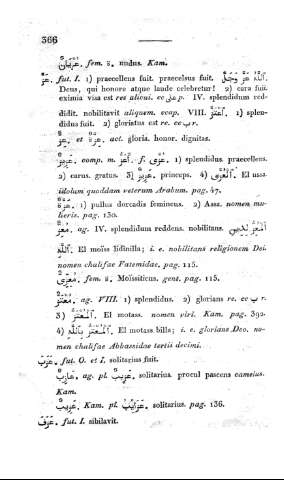 366
عُرْيَانٌ. fem. ة. nudus. Kam.
عَزَّ. fut. I. 1) praecellens fuit. praecelsus fuit. أَللّٰهُ عَزَّ وَجَلَّ
Deus, qui honore atque laude celebretur! 2) cara fuit.
eximia visa est res alicui. cc على p. IV. splendidum red-
didit. nobilitavit aliquem. ccap. VIII. إِعْتَزَّ 1) splen-
didus fuit. 2) gloriatus est re. cc ب r.
عِزٌّ. et عِزَّةٌ. act. gloria. honor. dignitas.
عَزِيزٌ. comp. m. أَعَزُّ. f. عُزَّى. 1) splendidus praecellens.
2) carus. gratus. 3) عَزِيزٌ. princeps. 4) أَلْعُزَّى. El usa.
idolum quoddam veterum Arabum. pag. 47.
عَزَّةٌ. 1) pullus dorcadis femineus. 2) Assa. nomen mu-
lieris. pag. 130.
مُعِزٌّ. ag. IV. splendidum reddens. nobilitans. أَلْمُعِزُّ لِدِينِ
أَللّٰهِ. El moïss lidinilla; i. e. nobilitans religionem Dei.
nomen chalifae Fatemidae. pag. 115.
مُعِزِّيٌّ. fem. ة. Moïssiticus. gent. pag. 115.
مُعْتَزٌّ. ag. VIII. 1) splendidus. 2) glorians re. cc ب r.
3) أَلْمُعْتَزُّ. El motass. nomen viri. Kam. pag. 390.
4) أَلْمُعْتَزُّ بِأَللّٰهِ. El motass billa; i. e. glorians Deo. no-
men chalifae Abbassidae tertii decimi.
عَزَبَ. fut. O. et I. solitarius fuit.
عَازِبٌ. ag. pl. عَزِيبٌ. solitarius. procul pascens camelus.
Kam.
عَزِيبٌ. Kam. pl. عَزَايِبُ. solitarius. pag. 136.
عَزَفَ. fut. I. sibilavit.